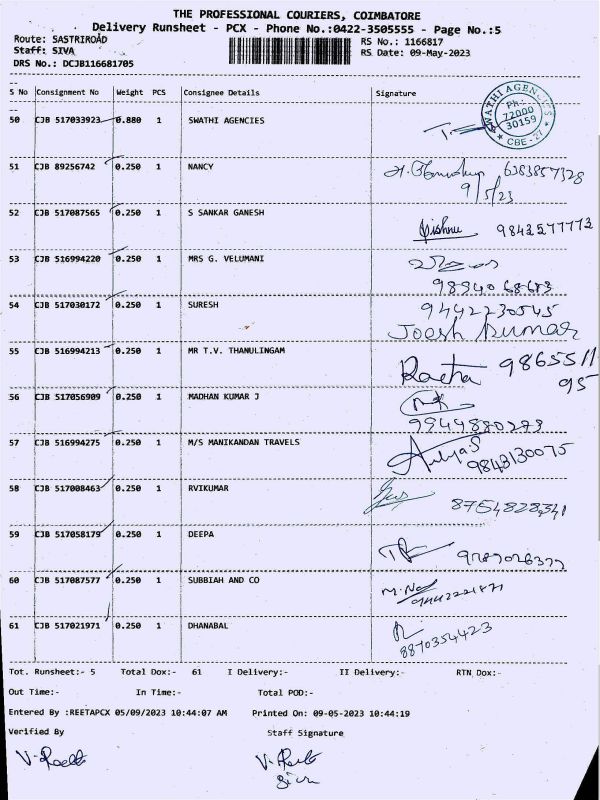 THE PROFESSIONAL COURIERS, COIMBATORE
Delivery Runsheet - PCX - Phone No.:0422-3505555 - Page No.:5
Route: SASTRIROAD RS No.: 1166817
Staff: SIVA RS Date: 09-May-2023
DRS No.: DCJB116681705
S No Consignment No Weight PCS Consignee Details Signature
50 CJB 517033923 0.880 1 SWATHI AGENCIES
SWATHI AGENCIES Ph.: 72000 30159 CBE - 27
51 CJB 89256742 0.250 1 NANCY 6383857328
9/5/23
52 CJB 517087565 0.250 1 S SANKAR GANESH Vishnu 9843577773
53 CJB 516994220 0.250 1 MRS G. VELUMANI
98940 68683
54 CJB 517030172 0.250 1 SURESH 9442230545
Joesh Kumar
55 CJB 516994213 0.250 1 MR T.V. THANULINGAM Radha 98655 11
95
56 CJB 517056909 0.250 1 MADHAN KUMAR J
9944880273
57 CJB 516994275 0.250 1 M/S MANIKANDAN TRAVELS
9843130075
58 CJB 517008463 0.250 1 RVIKUMAR 8754828341
59 CJB 517058179 0.250 1 DEEPA
60 CJB 517087577 0.250 1 SUBBIAH AND CO
61 CJB 517021971 0.250 1 DHANABAL
8870354423
Tot. Runsheet:- 5 Total Dox:- 61 I Delivery:- II Delivery:- RTN Dox:-
Out Time:- In Time:- Total POD:-
Entered By :REETAPCX 05/09/2023 10:44:07 AM Printed On: 09-05-2023 10:44:19
Verified By Staff Signature